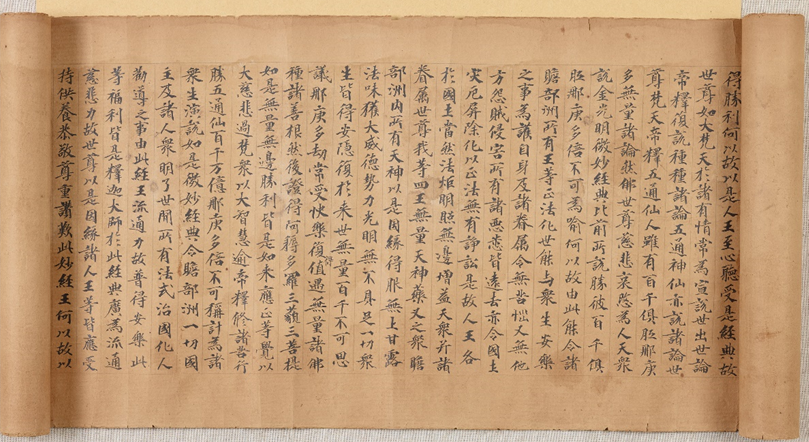 得勝利何以故以是人王至心聽受是經典故
世尊如大梵天於諸有情常為宣說世出世論
帝釋復說種種諸論五通神仙亦說諸論世
尊梵天帝釋五通仙人雖有百千俱胝那庾
多無量諸論然佛世尊慈悲哀愍為人天眾
說金光明微妙經典比前所說勝彼百千俱
胝那庾多倍不可為喻何以故由此能令諸
贍部洲所有王等正法化世能與眾生安樂
之事為護自身及諸眷屬令無苦惱又無他
方怨賊侵害所有諸惡悉皆遠去亦令國土
災厄屏除化以正法無有諍訟是故人王各
於國土當然法炬明照無邊增益天眾并諸
眷屬世尊我等四王無量天神藥叉之眾贍
部洲內所有天神以是因緣得服無上甘露
法味獲大威德勢力光明無不具足一切眾
生皆得安隱復於來世無量百千不可思
議那庾多劫常受快樂復得值遇無量諸佛
種諸善根然後證得阿耨多羅三藐三菩提
如是無量無邊勝利皆是如來應正等覺以
大慈悲過梵眾以大智慧逾帝釋修諸苦行
勝五通仙百千万億那庾多倍不可稱計為諸
眾生演說如是微妙經典令贍部洲一切國
主及諸人眾明了世間所有法式治國化人
勸導之事由此經王流通力故普得安樂此
等福利皆是釋迦大師於此經典廣為流通
慈悲力故世尊以是因緣諸人王等皆應受
持供養恭敬尊重讚歎此妙經王何以故以